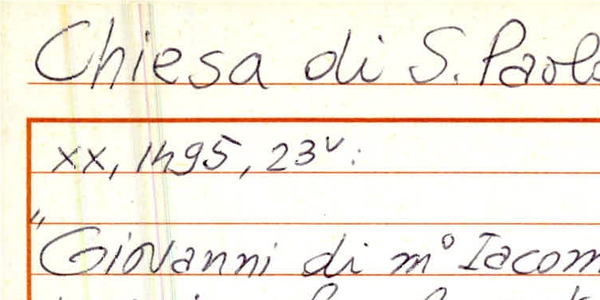 Chiesa di S. Paolo
xx, 1495, 23v:
"Giovanni di m° Iacom